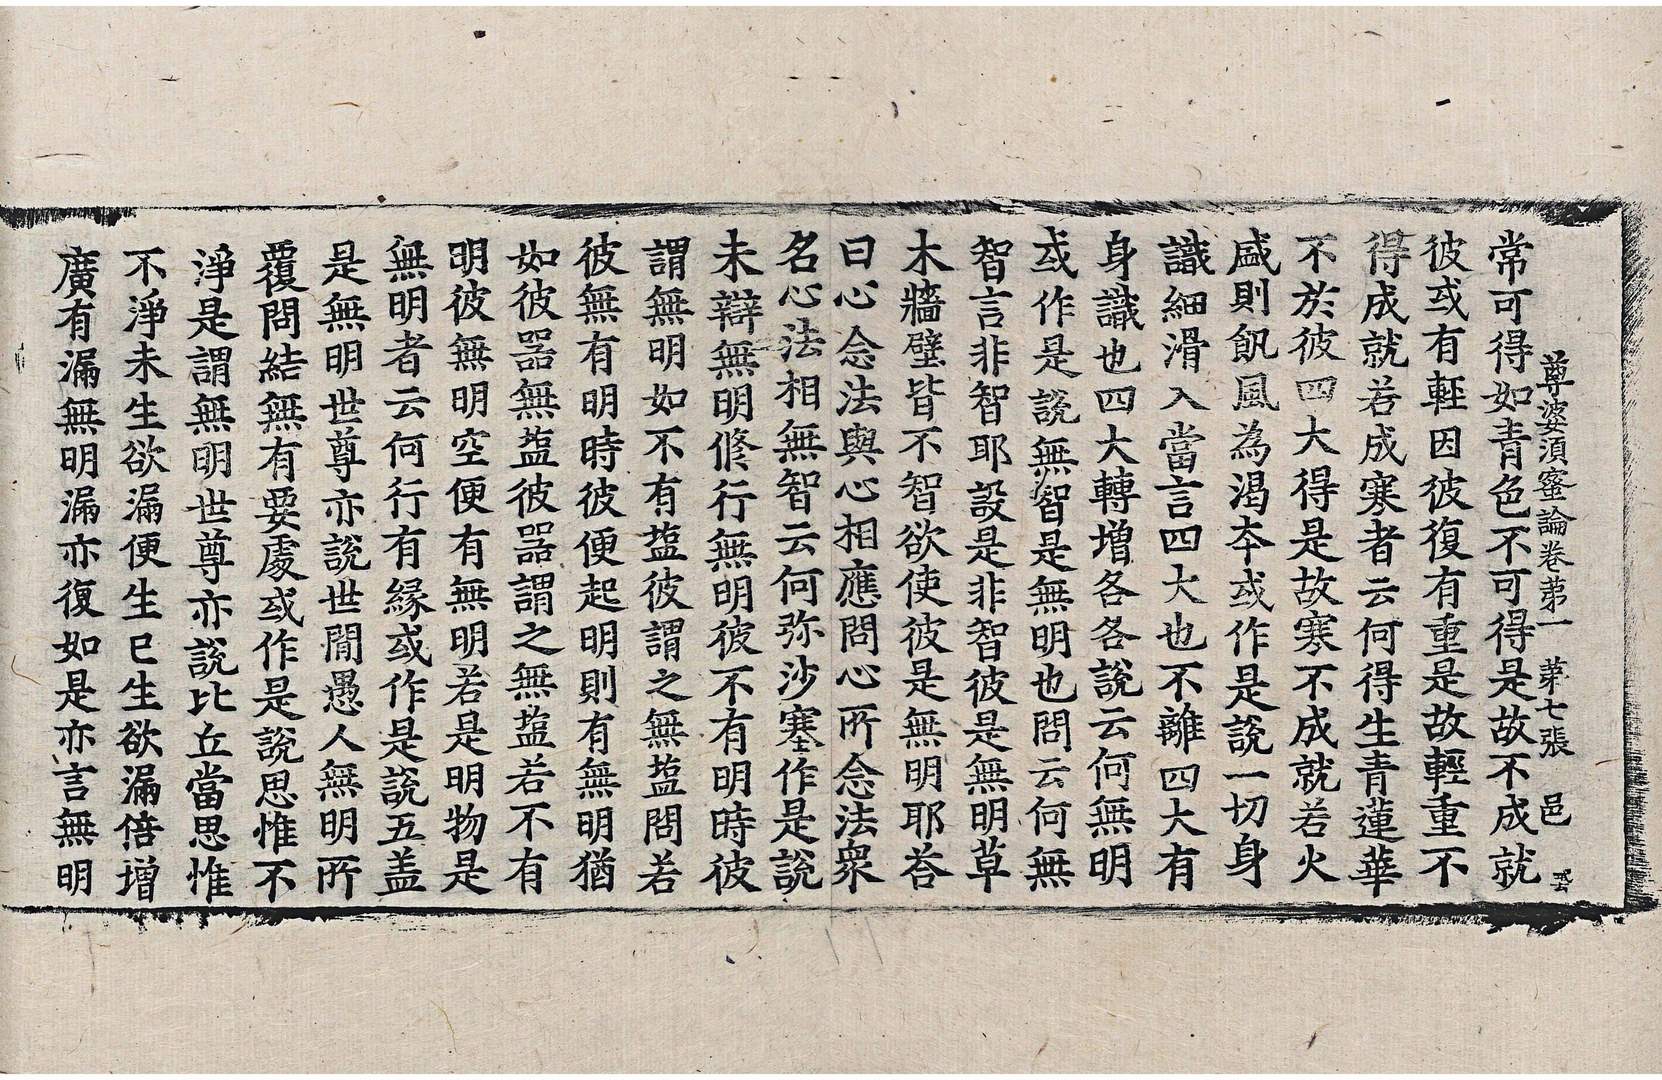 尊婆須蜜論卷苐一 苐七張 邑
常可得如青色不可得是故不成就
彼或有輕因彼復有重是故輕重不
得成就若成寒者云何得生青蓮華
不於彼四大得是故寒不成就若火
盛則飢風為渴夲或作是説一切身
識細滑入當言四大也不離四大有
身識也四大轉増各各説云何無明
或作是説無智是無明也問云何無
智言非智智耶設是非智彼是無明草
木牆壁皆不智欲使彼是無明耶荅
曰心念法與心相應問心所念法衆
名心法相無智云何弥沙塞作是說
未辯無明修行無明彼不有明時彼
謂無明如不有塩彼謂之無塩問若
彼無有明時彼便起明則有無明猶
如彼器無塩彼器謂之無塩若不有
明彼無明空便有無明若是明物是
無明者云何行有緣或作是説五盖
是無明世尊亦説世間愚人無明所
覆問結無有要處或作是說思惟不
淨是謂無明世尊亦說比丘當思惟
不淨未生欲漏便生已生欲漏倍増
廣有漏無明漏亦復如是亦言無明